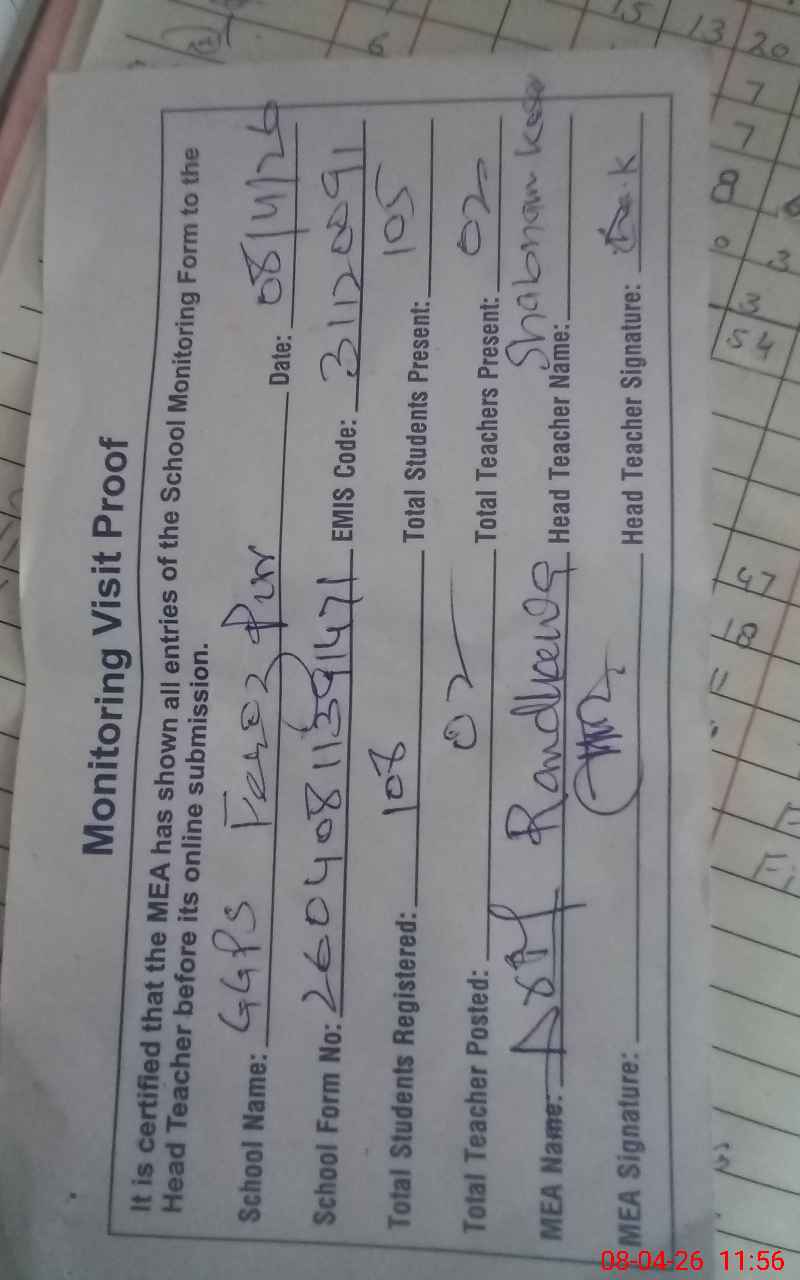 Monitoring Visit Proof
It is certified that the MEA has shown all entries of the School Monitoring Form to the
Head Teacher before its online submission.
School Name: GGPS Feroz Pur Date: 08/4/26
School Form No: 26040811391471 EMIS Code: 31120091
Total Students Registered: 108 Total Students Present: 105
Total Teacher Posted: 02 Total Teachers Present: 02
MEA Name: Randhawa Head Teacher Name: Shabnam
MEA Signature: Head Teacher Signature:
15 13 20
6 7
7
8
0 3
3
54
47
18
11
08-04-26 11:56